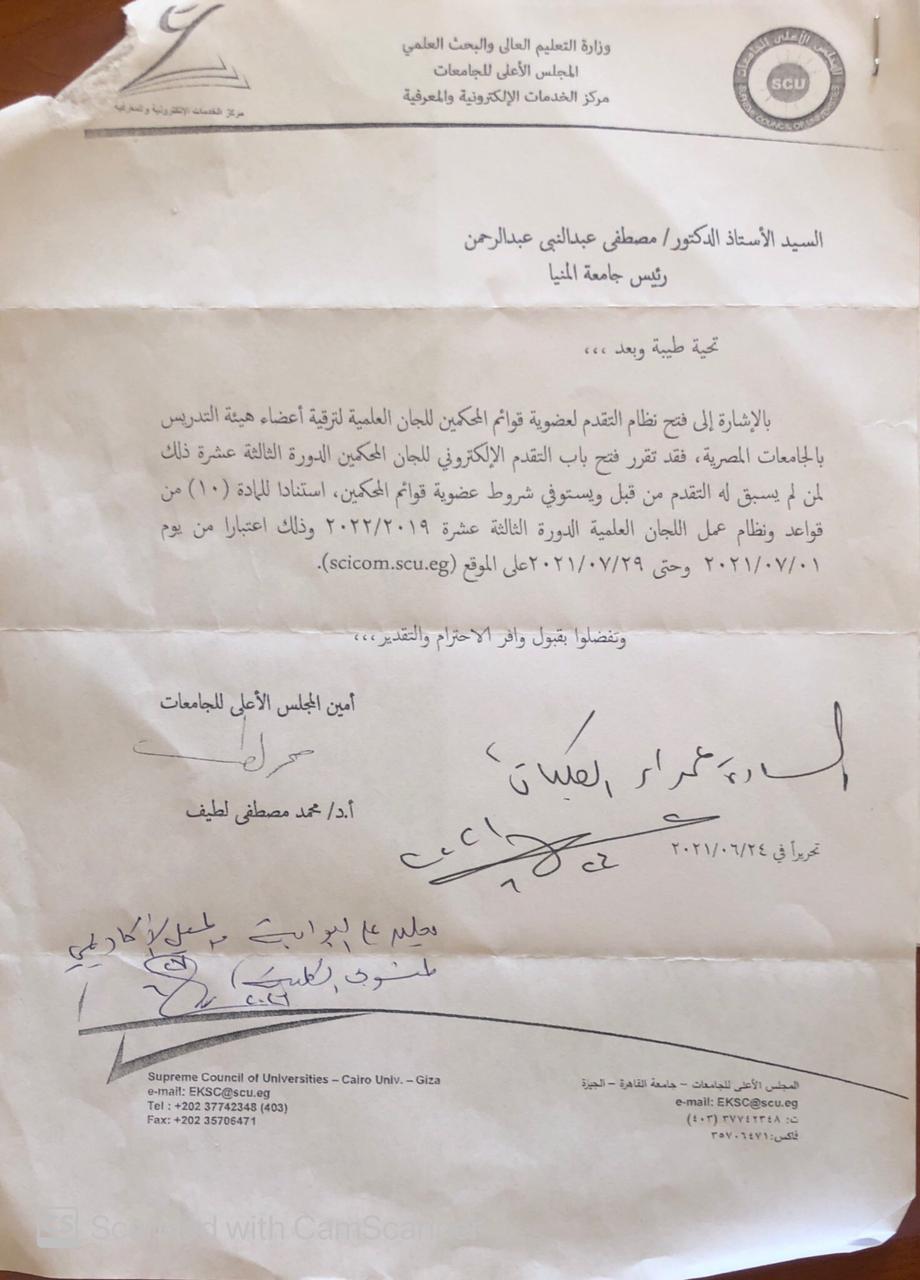 وزارة التعليم العالى والبحث العلمي
المجلس الأعلى للجامعات
مركز الخدمات الإلكترونية والمعرفية
المجلس الأعلى للجامعات
SCU
SUPREME COUNCIL OF UNIVERSITIES
مركز الخدمات الإلكترونية والمعرفية
السيد الأستاذ الدكتور/ مصطفى عبدالنبى عبدالرحمن
رئيس جامعة المنيا
تحية طيبة وبعد ،،،
بالإشارة إلى فتح نظام التقدم لعضوية قوائم المحكمين للجان العلمية لترقية أعضاء هيئة التدريس
بالجامعات المصرية، فقد تقرر فتح باب التقدم الإلكتروني للجان المحكمين الدورة الثالثة عشرة ذلك
لمن لم يسبق له التقدم من قبل ويستوفي شروط عضوية قوائم المحكمين، استنادا للمادة (١٠) من
قواعد ونظام عمل اللجان العلمية الدورة الثالثة عشرة ٢٠٢٢/٢٠١٩ وذلك اعتبارا من يوم
٢٠٢١/٠٧/٠١ وحتى ٢٠٢١/٠٧/٢٩على الموقع (scicom.scu.eg).
وتفضلوا بقبول وافر الاحترام والتقدير،،،
أمين المجلس الأعلى للجامعات
أ.د/ محمد مصطفى لطيف
السادة عمداء الكليات
تحريراً في ٢٠٢١/٠٦/٢٤
على البوابة
Supreme Council of Universities – Cairo Univ. – Giza
e-mail: EKSC@scu.eg
Tel : +202 37742348 (403)
Fax: +202 35706471
المجلس الأعلى للجامعات – جامعة القاهرة – الجيزة
e-mail: EKSC@scu.eg
ت: ٣٧٧٤٢٣٤٨ (٤٠٣)
فاكس:٣٥٧٠٦٤٧١
CS Scanned with CamScanner